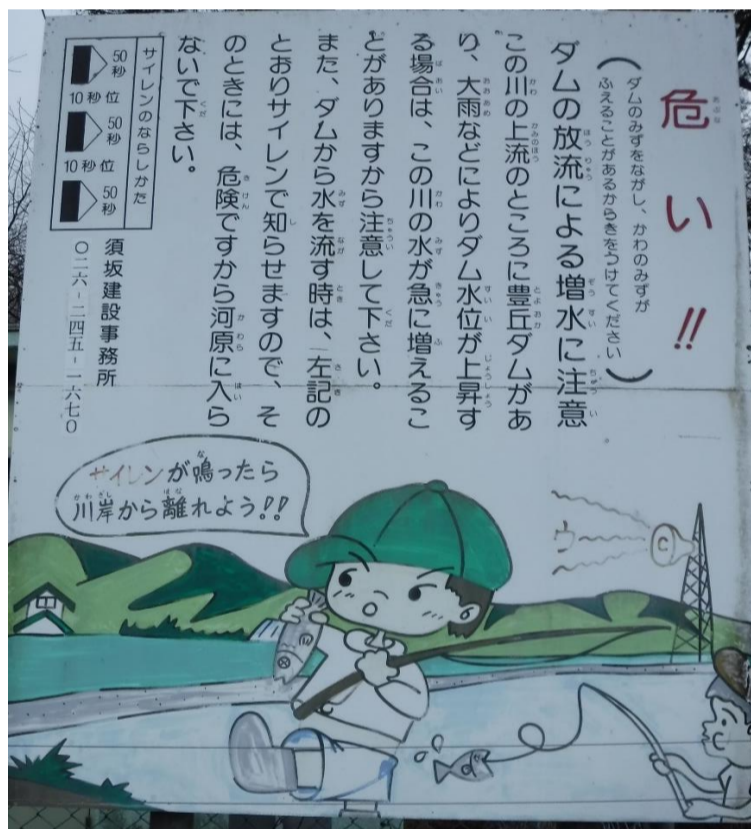 危い!!
(ダムのみずをながし、かわのみずが
ふえることがあるからきをつけてください)
ダムの放流による増水に注意
この川の上流のところに豊丘ダムがあ
り、大雨などによりダム水位が上昇す
る場合は、この川の水が急に増えるこ
とがありますから注意して下さい。
また、ダムから水を流す時は、左記の
とおりサイレンで知らせますので、そ
のときには、危険ですから河原に入ら
ないで下さい。
サイレンのならしかた
50秒
10秒位
50秒
10秒位
50秒
須坂建設事務所
〇二六-二四五-一六七〇
サイレンが鳴ったら
川岸から離れよう!!
ウー